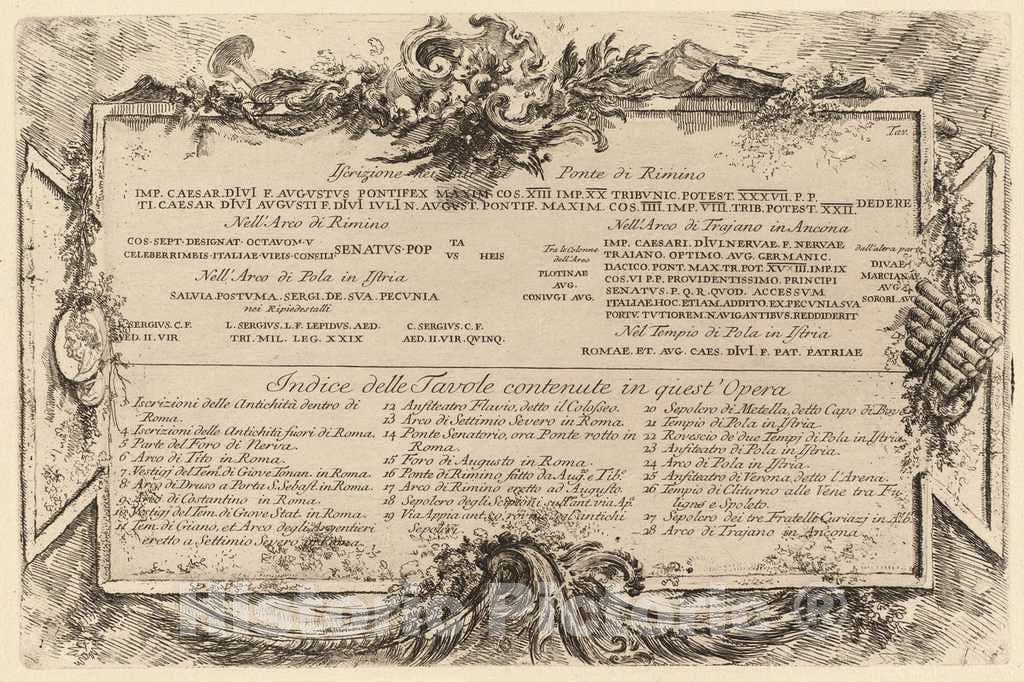 Tav.
Iscrizione nei
Ponte di Rimino
IMP. CAESAR. DIVI F. AVGVSTVS PONTIFEX MAXIM. COS. XIII IMP. XX TRIBVNIC. POTEST. XXXVII. P. P.
TI. CAESAR DIVI AVGVSTI F. DIVI IVLI N. AVGVST. PONTIF. MAXIM. COS. IIII. IMP. VIII. TRIB. POTEST. XXII. DEDERE
Nell'Arco di Rimino
COS·SEPT·DESIGNAT·OCTAVOM·V
CELEBERRIMEIS·ITALIAE·VIEIS·CONSILI
SENATVS·POP
TA
VS HEIS
Nell'Arco di Pola in Istria
SALVIA. POSTVMA. SERGI. DE. SVA. PECVNIA
nei Ripiedestalli
L. SERGIVS. C. F.
AED. II. VIR
L. SERGIVS. L. F. LEPIDVS. AED.
TRI. MIL. LEG. XXIX
C. SERGIVS. C. F.
AED. II. VIR. QVINQ.
Nell'Arco di Trajano in Ancona
Tra le Colonne
dell'Arco
PLOTINAE
AVG.
CONIVGI AVG.
IMP. CAESARI. DIVI. NERVAE. F. NERVAE
TRAIANO. OPTIMO. AVG. GERMANIC.
DACICO. PONT. MAX. TR. POT. XVIIII. IMP. IX
COS. VI P. P. PROVIDENTISSIMO. PRINCIPI
SENATVS. P. Q. R. QVOD. ACCESSVM
ITALIAE. HOC. ETIAM. ADDITO. EX. PECVNIA. SVA
PORTV. TVTIOREM. NAVIGANTIBVS. REDDIDERIT
dall'altra parte
DIVAE
MARCIANAE
AVG
SORORI. AVG
Nel Tempio di Pola in Istria
ROMAE. ET. AVG. CAES. DIVI. F. PAT. PATRIAE
Indice delle Tavole contenute in quest'Opera
2 Iscrizioni delle Antichità dentro di
Roma.
4 Iscrizioni delle Antichità fuori di Roma.
5 Parte del Foro di Nerva.
6 Arco di Tito in Roma.
7 Vestigi del Tem. di Giove Tonan. in Roma.
8 Arco di Druso a Porta S. Sebast. in Roma.
9 Arco di Costantino in Roma.
10 Vestigi del Tem. di Giove Stat. in Roma.
11 Tem. di Giano, et Arco degli Argentieri
eretto a Settimio Severo in Roma.
12 Anfiteatro Flavio, detto il Colosseo.
13 Arco di Settimio Severo in Roma.
14 Ponte Senatorio, ora Ponte rotto in
Roma.
15 Foro di Augusto in Roma.
16 Ponte di Rimino, fatto da Aug. e Tib.
17 Arco di Rimino eretto ad Augusto.
18 Sepolcro degli Scipioni sull'ant. via Ap.
19 Via Appia antica
Sepolcri
20 Sepolcro di Metella, detto Capo di Bove
21 Tempio di Pola in Istria.
22 Rovescio de' due Tempj di Pola in Istria.
23 Anfiteatro di Pola in Istria.
24 Arco di Pola in Istria.
25 Anfiteatro di Verona, detto l'Arena.
26 Tempio di Cliturno alle Vene tra Fu-
ligno e Spoleto.
27 Sepolcro dei tre Fratelli Curiazj in Alb.
28 Arco di Trajano in Ancona
Historic Pictoric ®